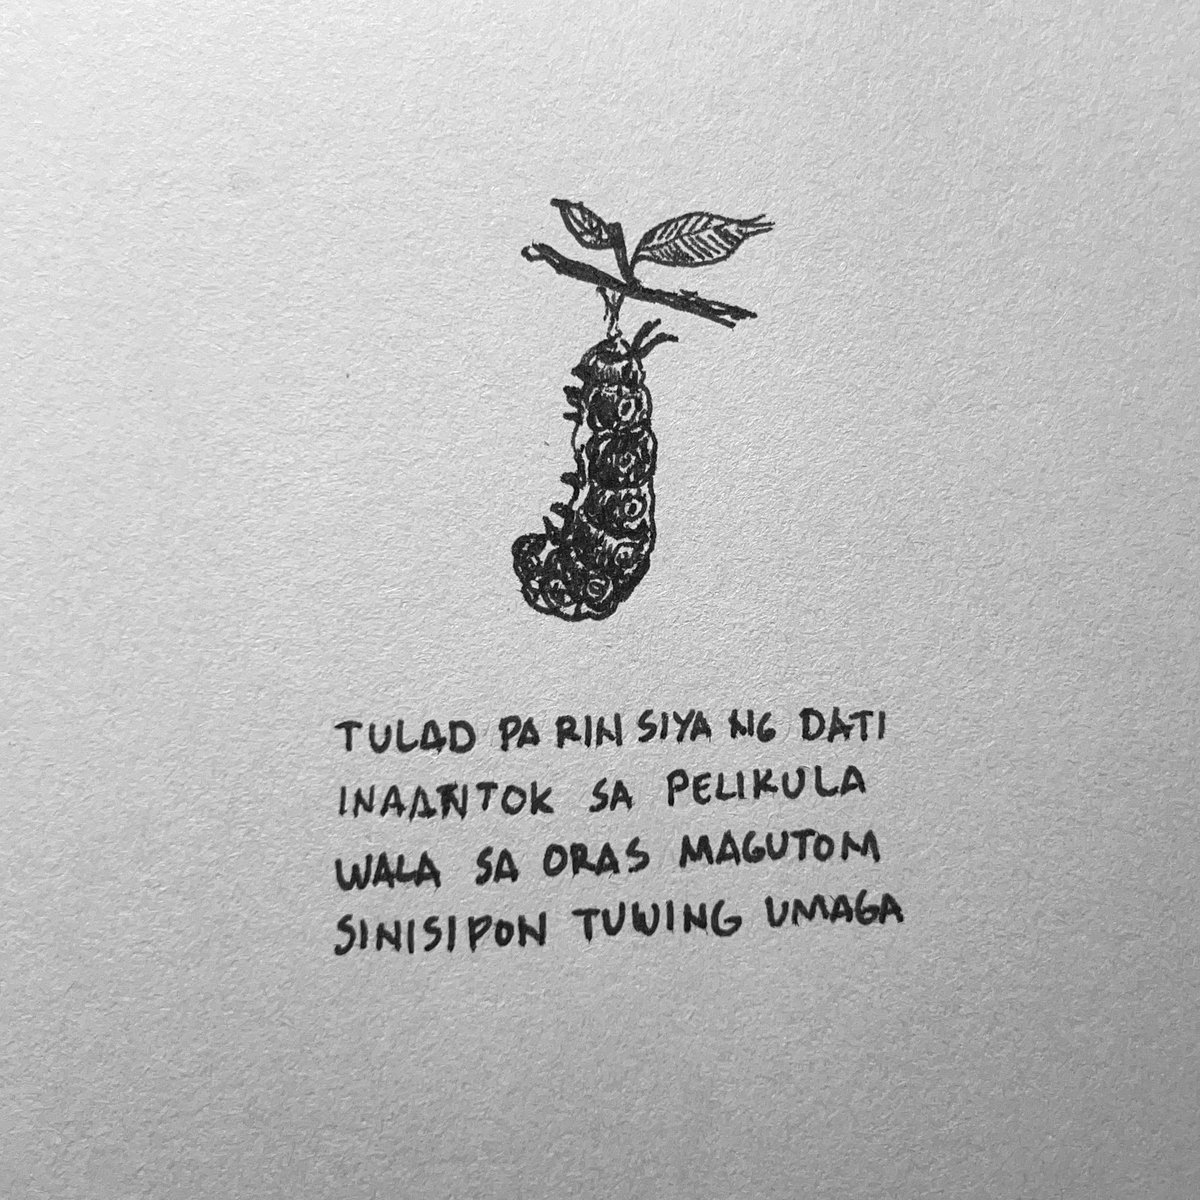 TULAD PA RIN SIYA NG DATI
INAANTOK SA PELIKULA
WALA SA ORAS MAGUTOM
SINISIPON TUWING UMAGA